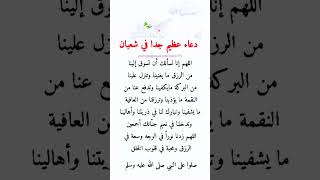 دعاء عظيم جدا في شعبان
اللهم إنا نسألك أن تسوق إلينا
من الرزق ما يغنينا وتنزل علينا
من البركة مايكفينا وتدفع عنا من
النقمة ما يؤذينا وترزقنا من العافية
ما يشفينا وتبارك لنا في ذريتنا وأهالينا
وتدخلنا في نعيم جنّاتك أجمعين
اللهم زدنا نوراً في الوجه وسعة في
الرزق ومحبة في قلوب الخلق
صلوا على النبي صلى الله عليه وسلم